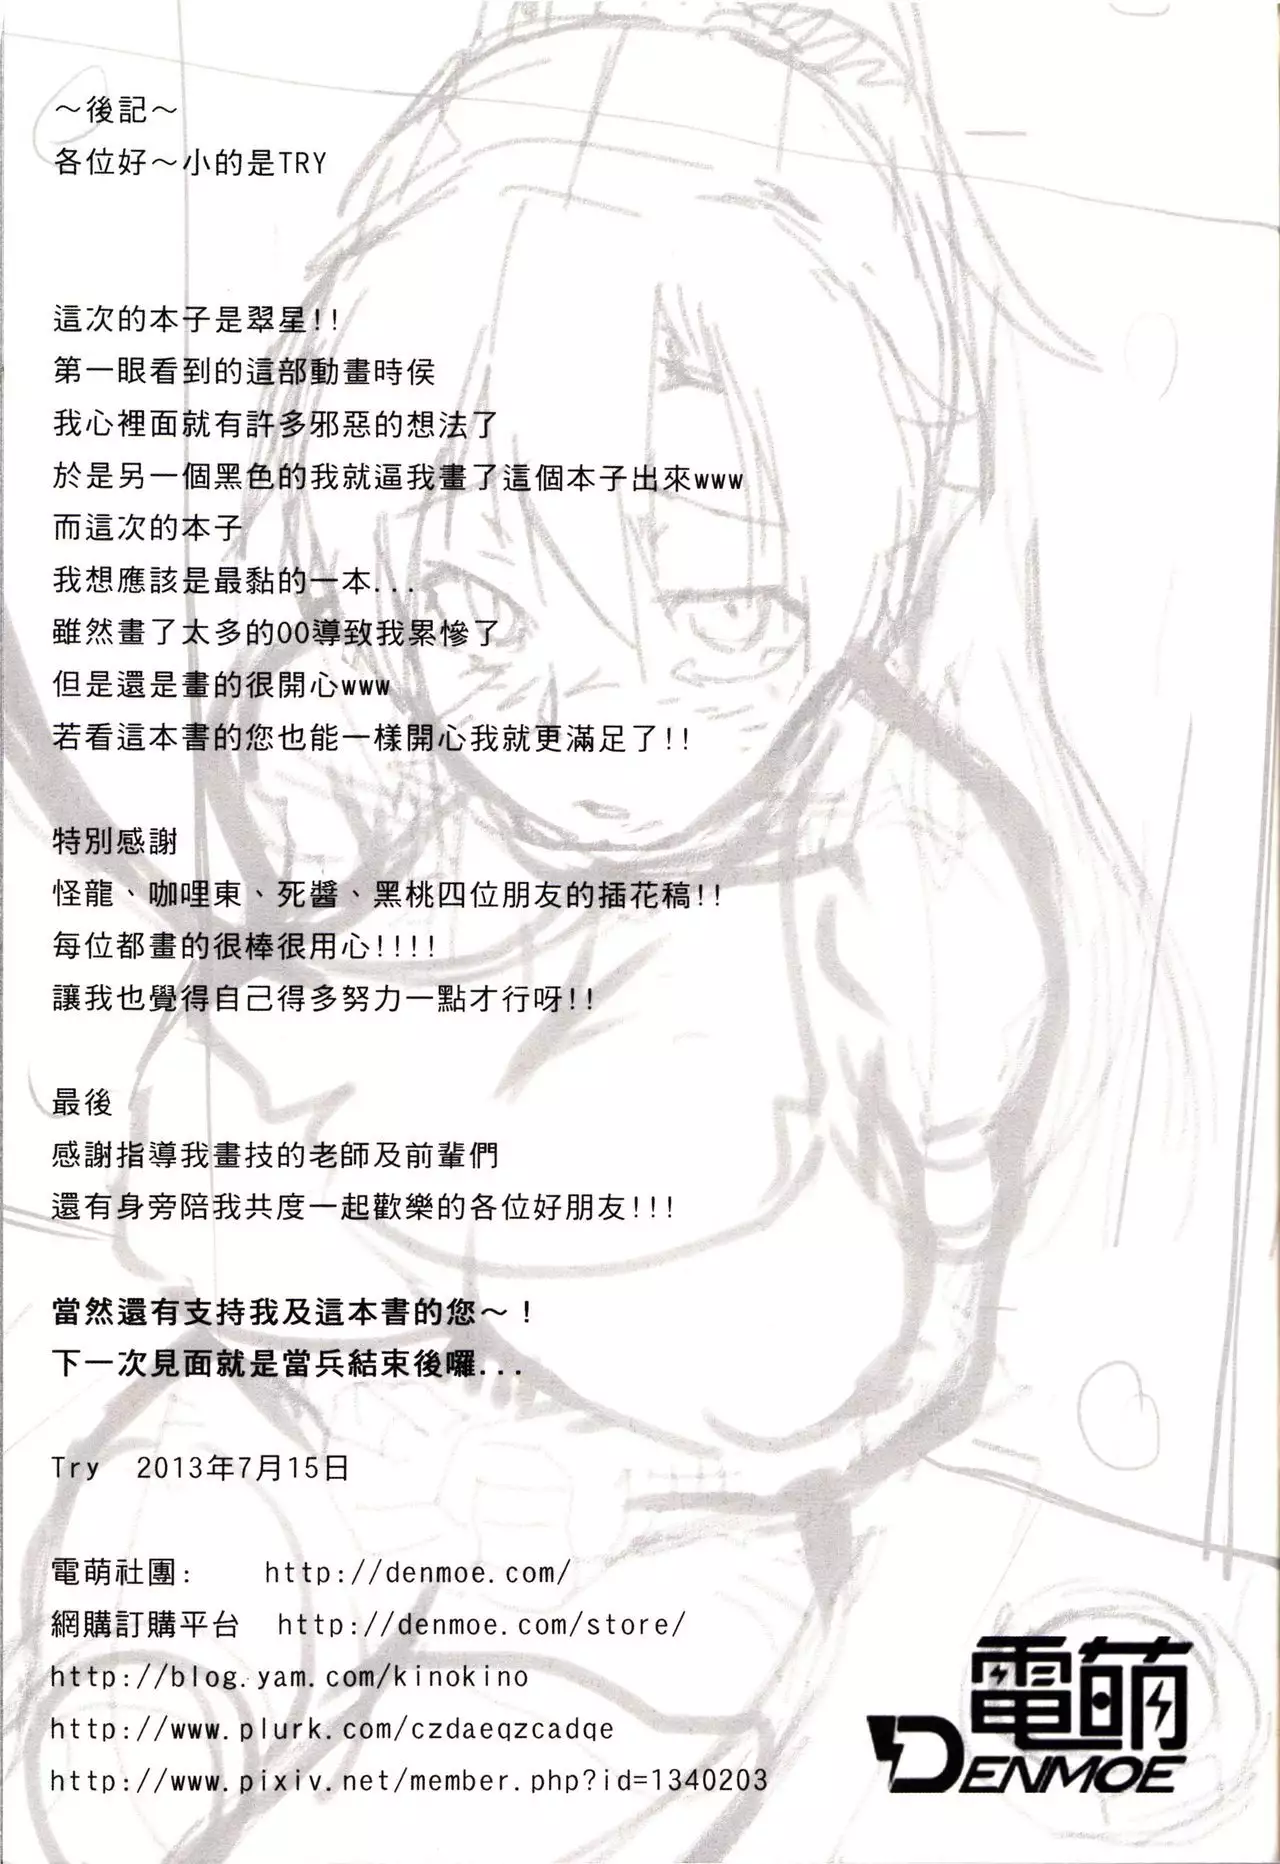 ～後記～
各位好～小的是TRY
這次的本子是翠星!!
第一眼看到的這部動畫時侯
我心裡面就有許多邪惡的想法了
於是另一個黑色的我就逼我畫了這個本子出來www
而這次的本子
我想應該是最黏的一本...
雖然畫了太多的OO導致我累慘了
但是還是畫的很開心www
若看這本書的您也能一樣開心我就更滿足了!!
特別感謝
怪龍、咖哩東、死醬、黑桃四位朋友的插花稿!!
每位都畫的很棒很用心!!!!
讓我也覺得自己得多努力一點才行呀!!
最後
感謝指導我畫技的老師及前輩們
還有身旁陪我共度一起歡樂的各位好朋友!!!
當然還有支持我及這本書的您～!
下一次見面就是當兵結束後囉...
Try 2013年7月15日
電萌社團: http://denmoe.com/
網購訂購平台 http://denmoe.com/store/
http://blog.yam.com/kinokino
http://www.plurk.com/czdaeqzcadqe
http://www.pixiv.net/member.php?id=1340203
電萌
DENMOE